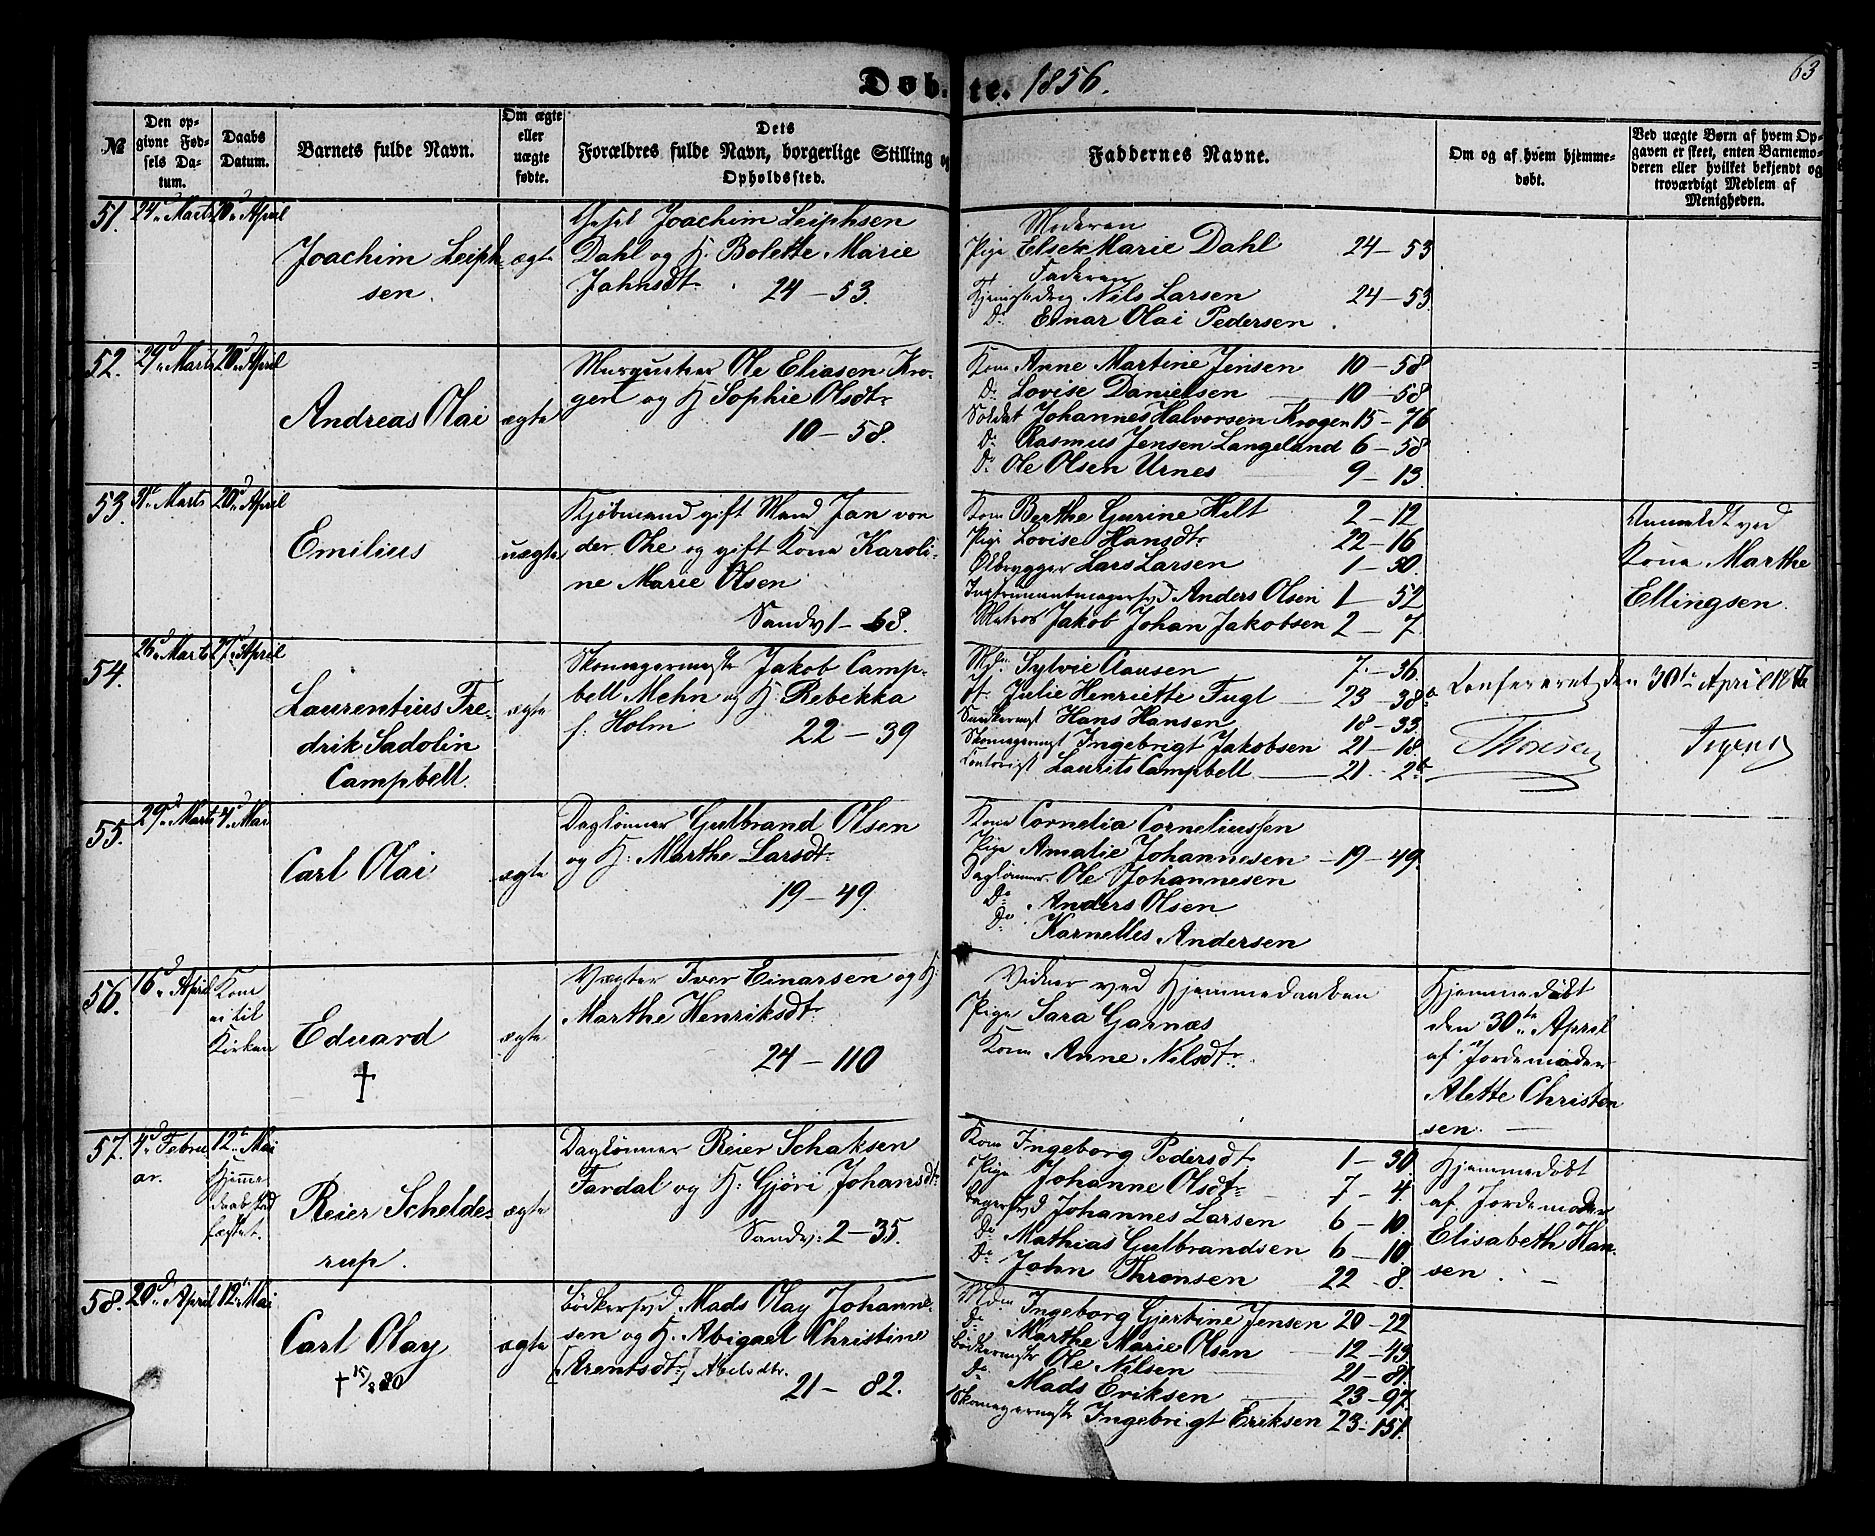 Døb- te. 1856.
63
№
Den opgivne Fødsels Datum.
Daabs Datum.
Barnets fulde Navn.
Om ægte eller uægte fødte.
Dets Forældres fulde Navn, borgerlige Stilling og Opholdssted.
Faddernes Navne.
Om og af hvem hjemmedøbt.
Ved uægte Børn af hvem Opgaven er skeet, enten Barnemoderen eller hvilket bekjendt og troværdigt Medlem af Menigheden.
51. 24d Marts 20d April
Joachim Leiph-
sen.
ægte
Joachim Leiphsen
Dahl og H. Bolette Marie
Jahnsdtr.
24 – 53.
Moderen
Pige Else Marie Dahl 24 – 53
Faderen
Nils Larsen 24 – 53.
Do Einar Olai Pedersen
52. 29d Marts 20d April
Andreas Olai
ægte
Musqueteer Ole Eliasen Kro-
gen og H Sophie Olsdtr
10 – 58.
Kone Anne Martine Jensen 10 – 58
Do Lovise Danielsen 10 – 58
Soldat Johannes Halvorsen Krogen 15 – 76
Do Rasmus Jensen Langeland 6 – 58
Do Ole Olsen Urnes 9 – 13.
53. Marts 20d April
Emilius
uægte
Kjøbmand gift Mand Jan von
der Ohe og gift Kone Karoli-
ne Marie Olsen
Sandv. 1 – 68.
Kone Berthe Gurine Hilt 2 – 12
Pige Lovise Hansdtr 22 – 16
Ølbrygger Lars Larsen 1 – 30.
Instrumentmagersvd Anders Olsen 1 – 52
Matros Jakob Johan Jakobsen 2 – 7.
Anmeldt ved
Kone Marthe
Ellingsen.
54. 26d Marts 27d April
Laurentius Fre-
drik Sadolin
Campbell.
ægte
Skomagermestr Jakob Camp-
bell Mehn og H Rebekka
f. Holm 22 – 39
Sylvie Clausen 7 – 36.
Jf. Julie Henriette Fugl 23 – 38a
Hans Hansen 18 – 33.
Skomagermst Ingebrigt Jakobsen 21 – 18
Laurits Campbell 21 – 2b
Confereret, den 30te April
55. 29d Marts 4d Mai
Carl Olai
ægte
Daglønner Gulbrand Olsen
og H: Marthe Larsdtr.
19 – 49.
Kone Cornelia Corneliussen
Pige Amalie Johannesen – 19 – 49.
Daglønner Ole Johannesen
Do Anders Olsen
Do Karnelles Andersen
56. 16d April Kom
ei til
Kirken
Eduard
†
ægte
Vægter Iver Einarsen og H:
Marthe Henriksdtr
24 – 110
Vidner ved Hjemmedaaben
Pige Sara Garnæs
Kone Anne Nilsdtr.
Hjemmedøbt
den 30te April
af Jordemoder
Alette Christen
sen. –
57. 4d Febru
ar.
12te Mai
Hjemme
daab stad
fæstet.
Reier Schelde-
rup.
ægte
Daglønner Reier Schaksen
Fardal og H: Gjøri Johansdtr.
Sandv: 2 – 35.
Kone Ingeborg Pedersdtr 1 – 30.
Pige Johanne Olsdtr 7 – 4.
Bagersvd Johannes Larsen 6 – 10.
Do Mathias Gulbrandsen 6 – 10.
Do John Thronsen 22 – 8.
Hjemmedøbt
af Jordemoder
Elisabeth Han-
sen. –
58. 20d April 12te Mai
Carl Olay
† 15/8 80
ægte
Bødkersvd. Mads Olay Johanne-
sen og H. Abigael Christine
[Arentsdtr.] Abelsdtr.
21 – 82.
Mdm Ingeborg Gjertine Jensen 20 – 22
Do Marthe Marie Olsen 12 – 43.
Bødkermestr Ole Nilsen 21 – 81.
Do Mads Eriksen 23 – 97.
Skomagermstr Ingebrigt Eriksen 23 – 151.